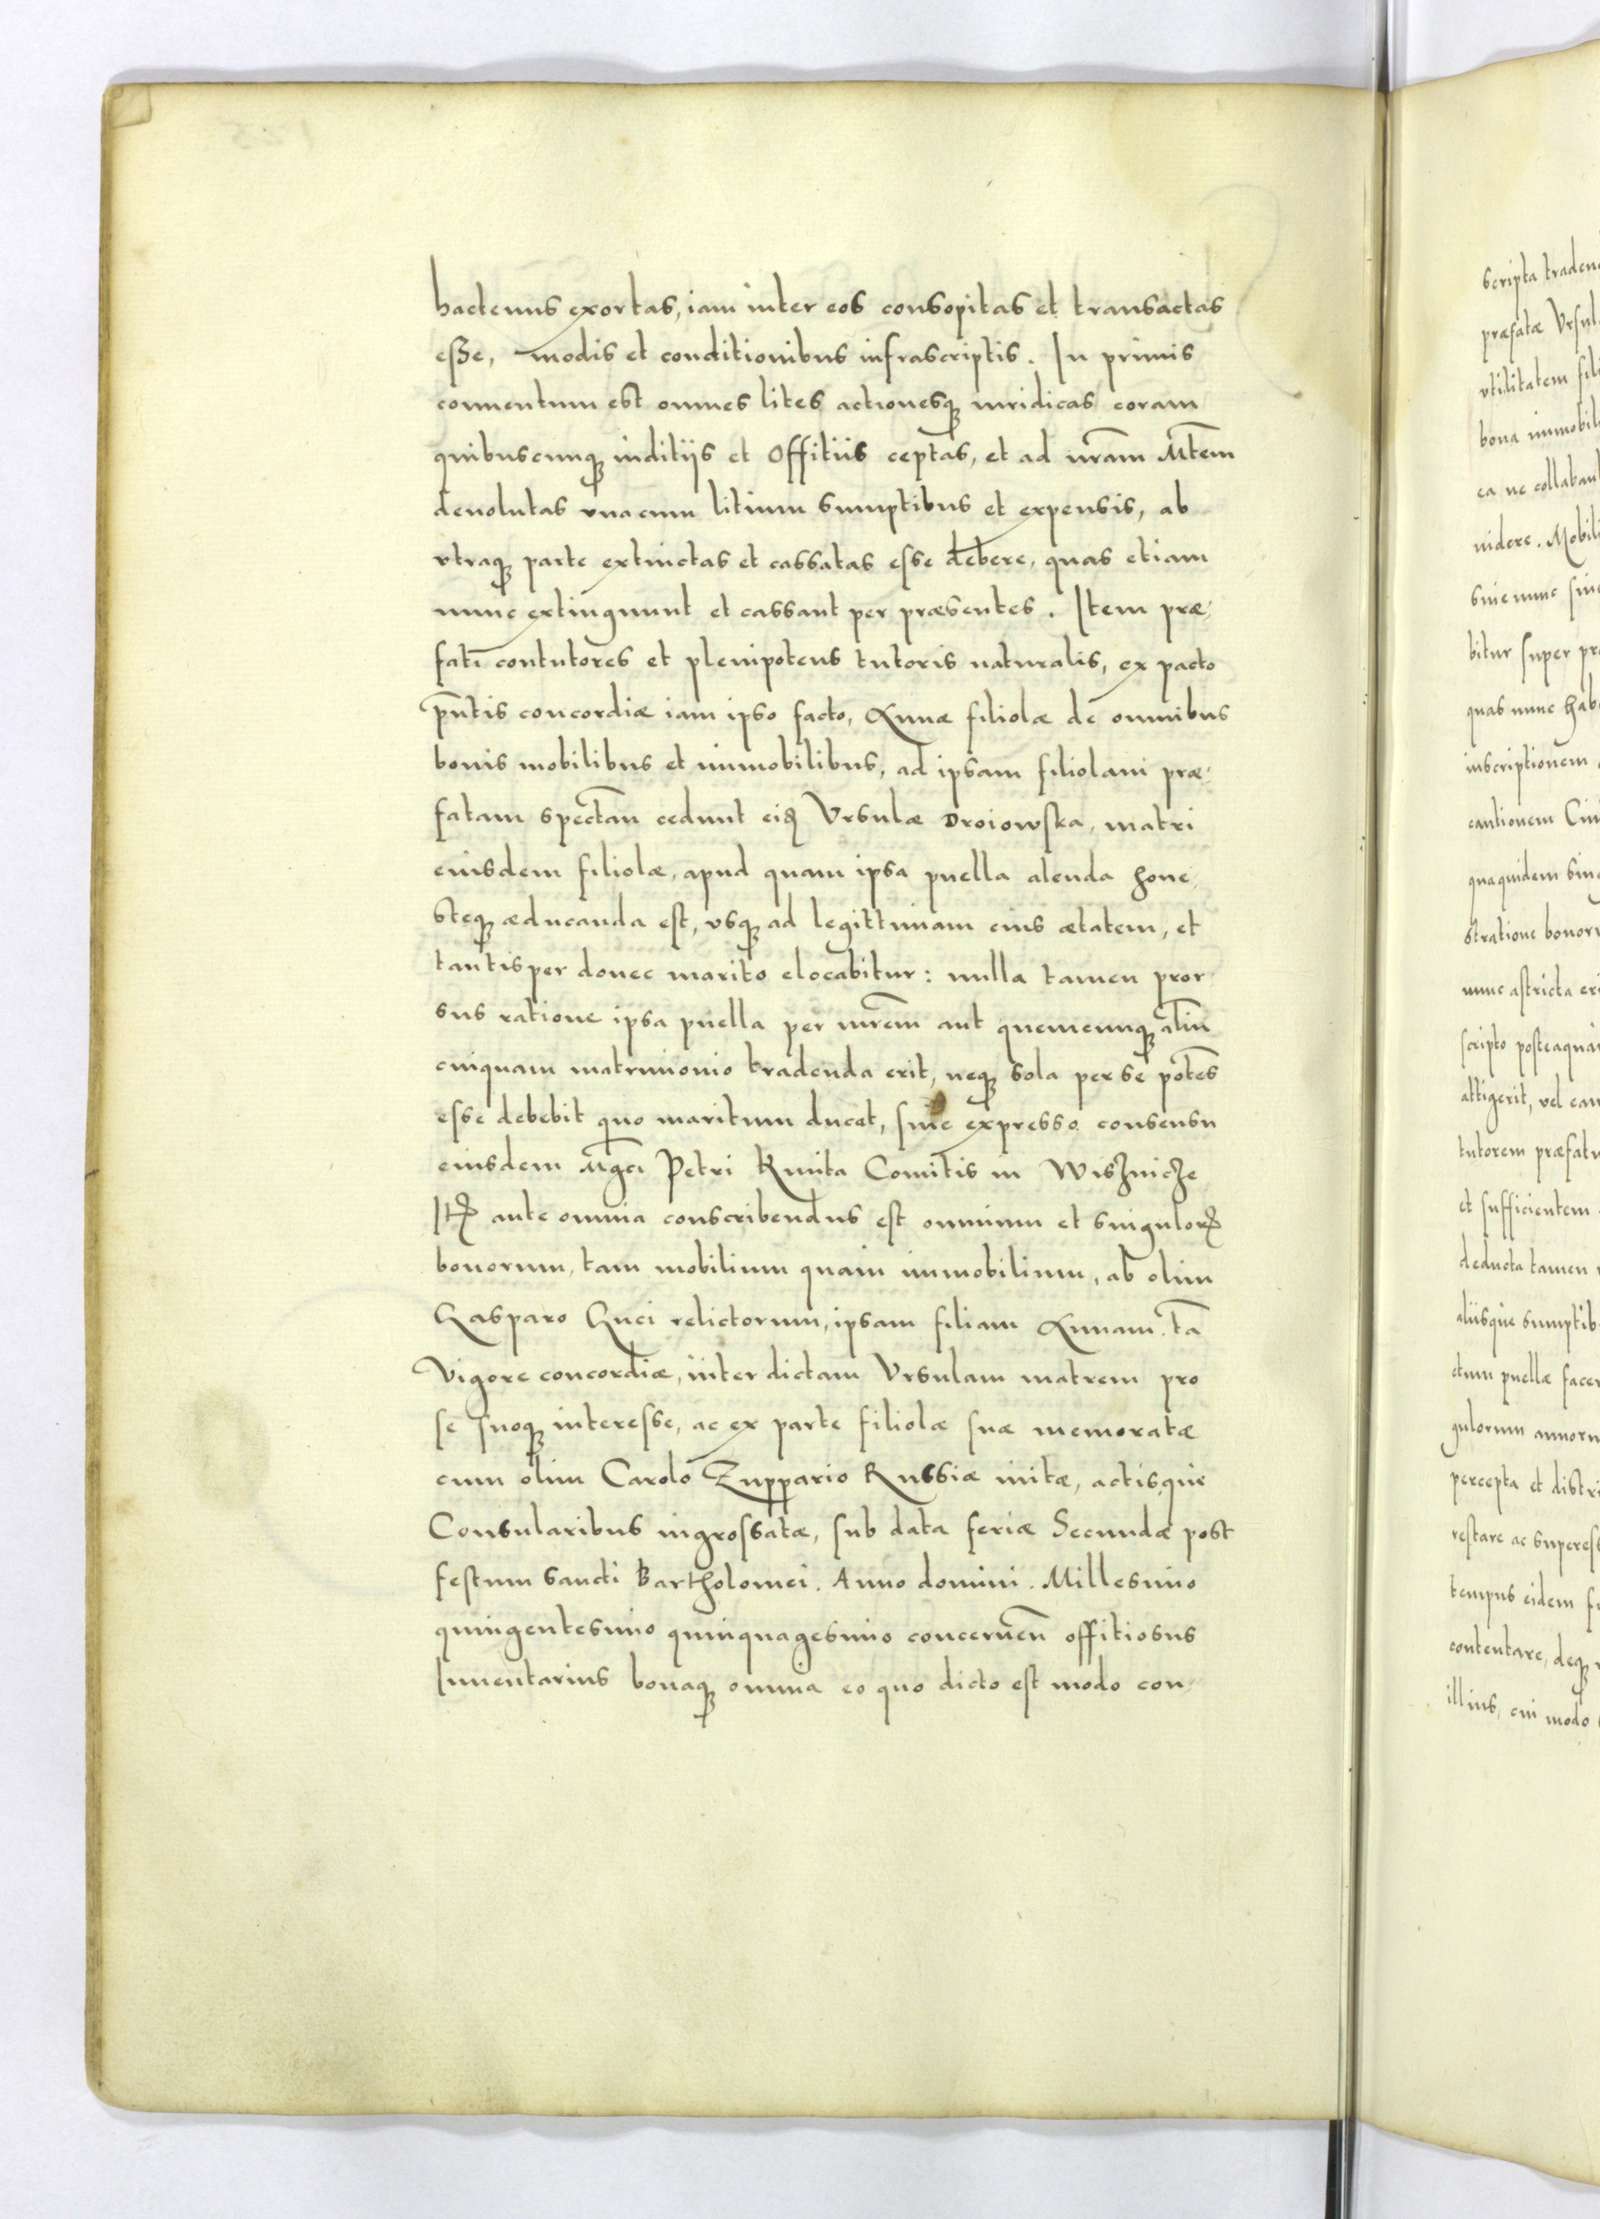 hactenus exortas, iam inter eos consopitas et transactas
eße, modis et conditionibus infrascriptis. In primis
conuentum est omnes lites actionesq iuridicas coram
quibuscunq iuditijs et Offitiis ceptas, et ad nram Mtem
deuolutas vnacum litium sumptibus et expensis, ab
vtraq parte extinctas et cassatas esse debere, quas etiam
nunc extingunnt et cassant per præsentes. Item præ-
fati contutores et plenipotens tutoris naturalis, ex pacto
pntis concordiæ iam ipso facto, Annæ filiolæ de omnibus
bonis mobilibus et immobilibus, ad ipsam filiolam præ-
fatam spectan cedunt eid Vrsulæ Droiowska, matri
eiusdem filiolæ, apud quam ipsa puella alenda hone-
steq æducanda est, vsq ad legittimam eius ætatem, et
tantisper donec marito elocabitur: nulla tamen pror-
sus ratione ipsa puella per mrem aut quemcunq aliu
cuiquam matrimonio tradenda erit, neq sola per se potes
esse debebit quo maritum ducat, sine expresso consensu
eiusdem Mgci Petri Kmita Comitis in Wisznicze
It ante omnia conscribendus est omnium et singulor
bonorum, tam mobilium quam immobilium, ab olim
Gasparo Guci relictorum, ipsam filiam Annam ta
Vigore concordiæ, inter dictam Vrsulam matrem pro
se suoq interesse, ac ex parte filiolæ suæ memoratæ
cum olim Carolo Zuppario Russiæ initæ, actisque
Consularibus ingrossatæ, sub data feriæ Secundæ post
festum sancti Bartholomei. Anno domini. Millesimo
quingentesimo quinquagesimo concernen offitiosus
Inuentarius bonaq omnia eo quo dicto est modo con-
scripta
præfatæ
vtilitatem
bona
ea ne
uidere.
siue nunc
bitur super
quas nunc
inscriptionem
cautionem
quaquidem
stratione
nunc astricta
scripto
attigerit, vel
tutorem
et sufficientem
deducta tamen
aliisque
ctum puellæ
gulorum
percepta et
restare ac
tempus eidem
contentare, deq
illius, cui modo